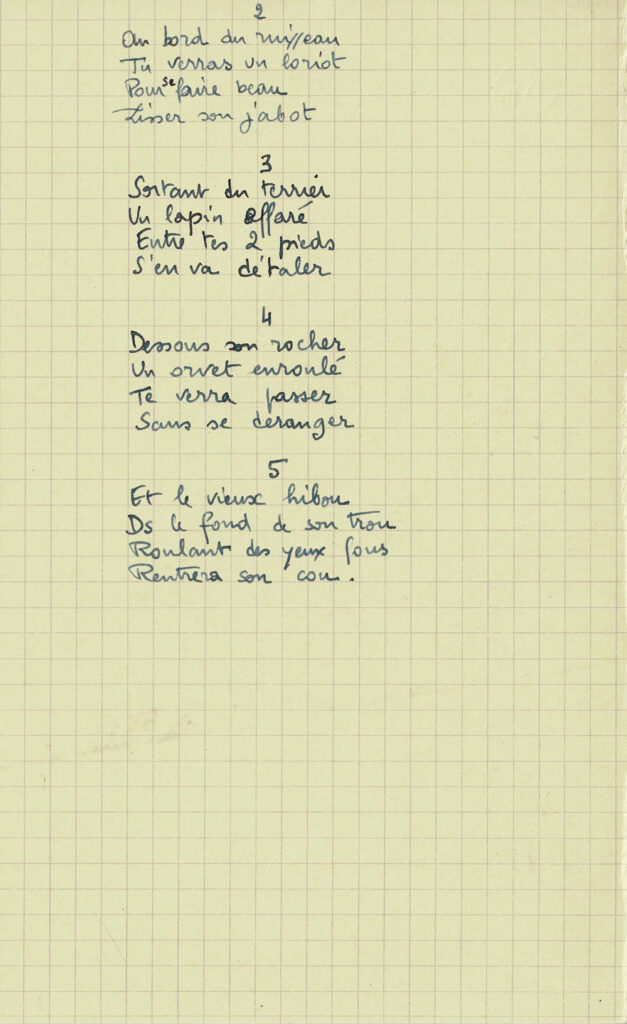 2
Au bord du ruisseau
Tu verras un loriot
Pour se faire beau
Lisser son jabot
3
Sortant du terrier
Un lapin effaré
Entre tes 2 pieds
S'en va détaler
4
Dessous son rocher
Un orvet enroulé
Te verra passer
Sans se déranger
5
Et le vieux hibou
Ds le fond de son trou
Roulant des yeux fous
Rentrera son cou.